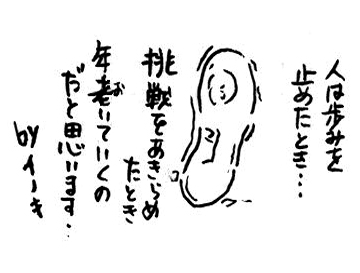 人は歩みを
止めたとき…
挑戦をあきらめ
たとき
年老いていくの
だと思います…
by イーキ